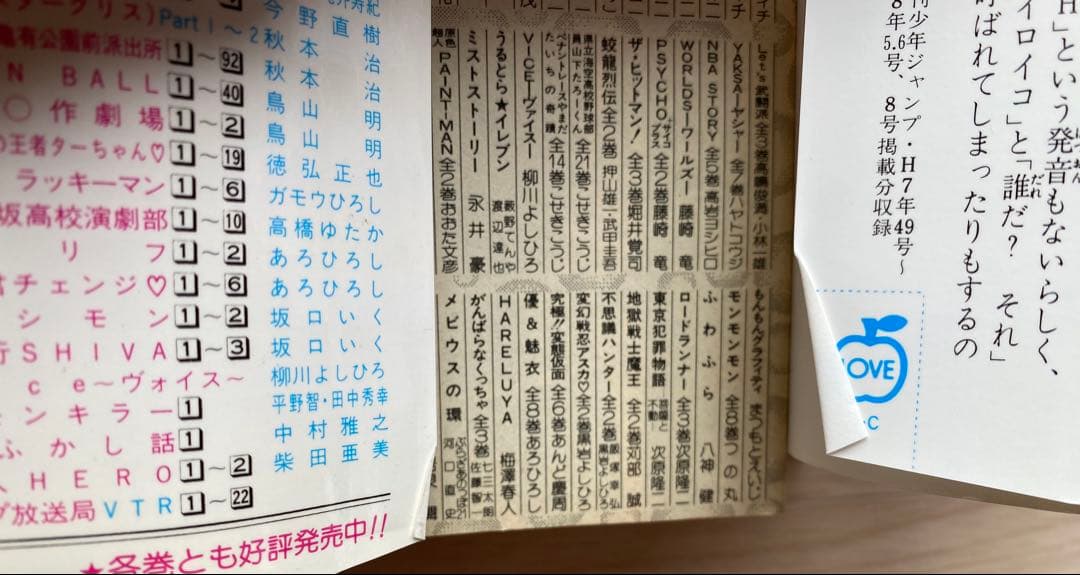 Part 1〜2 今野直樹
亀有公園前派出所 1〜92 秋本治
N BALL 1〜40 鳥山明
〇作劇場 1〜2 鳥山明
の王者ターちゃん♡ 1〜19 徳弘正也
ラッキーマン 1〜6 ガモウひろし
坂高校演劇部 1〜10 高橋ゆたか
リフ 1〜2 あろひろし
チェンジ♡ 1〜6 あろひろし
シモン 1〜2 坂口いく
行SHIVA 1〜3 坂口いく
ce〜ヴォイス〜 柳川よしひろ
ンキラー 1 平野智・田中秀幸
ふかし話 1 中村雅之
HERO 1〜2 柴田亜美
放送局VTR 1〜22
★各巻とも好評発売中!!
Let's 武闘派 全3巻 高橋俊満・小林一雄
YAKSA―ヤシャー 全7巻 ハヤトコウジ
NBA STORY 全5巻 高岩ヨシヒロ
WORLDS―ワールズ― 藤崎竜
PSYCHO+ サイコプラス 全2巻 藤崎竜
ザ・ヒットマン! 全3巻 堀井覚司
蛟龍烈伝 全2巻 押山雄一・武田圭吾
県立海空高校野球部員山下たろーくん 全21巻 こせきこうじ
ペナントレースやまだたいちの奇蹟 全14巻 こせきこうじ
VICE―ヴァイス― 柳川よしひろ
うるとら★イレブン 萩野てんや 渡辺達也
ミストストーリー 永井豪
原色超人PAINTMAN 全2巻 おおた文彦
もんもんグラフィティ まつもとえいじ
モンモンモン 全8巻 つの丸
ふわふら 八神健
ロードランナー 全3巻 次原隆二
東京犯罪物語 次原隆二
地獄戦士魔王 全2巻 刈部誠
不思議ハンター 全2巻 飯塚幸弘 黒岩よしひろ
変幻戦忍アスカ♡ 全2巻 黒岩よしひろ
究極!!変態仮面 全6巻 あんど慶周
優&魅衣 全8巻 あろひろし
HARELUYA 梅澤春人
がんばらなくっちゃ 全3巻 七太朗 佐藤智一
メビウスの環 河口直史
H」という発音もないらしく、
イロイコ」と「誰だ? それ」
呼ばれてしまったりもするの
刊少年ジャンプ・H7年49号〜
8年5.6号、8号掲載分収録
LOVE